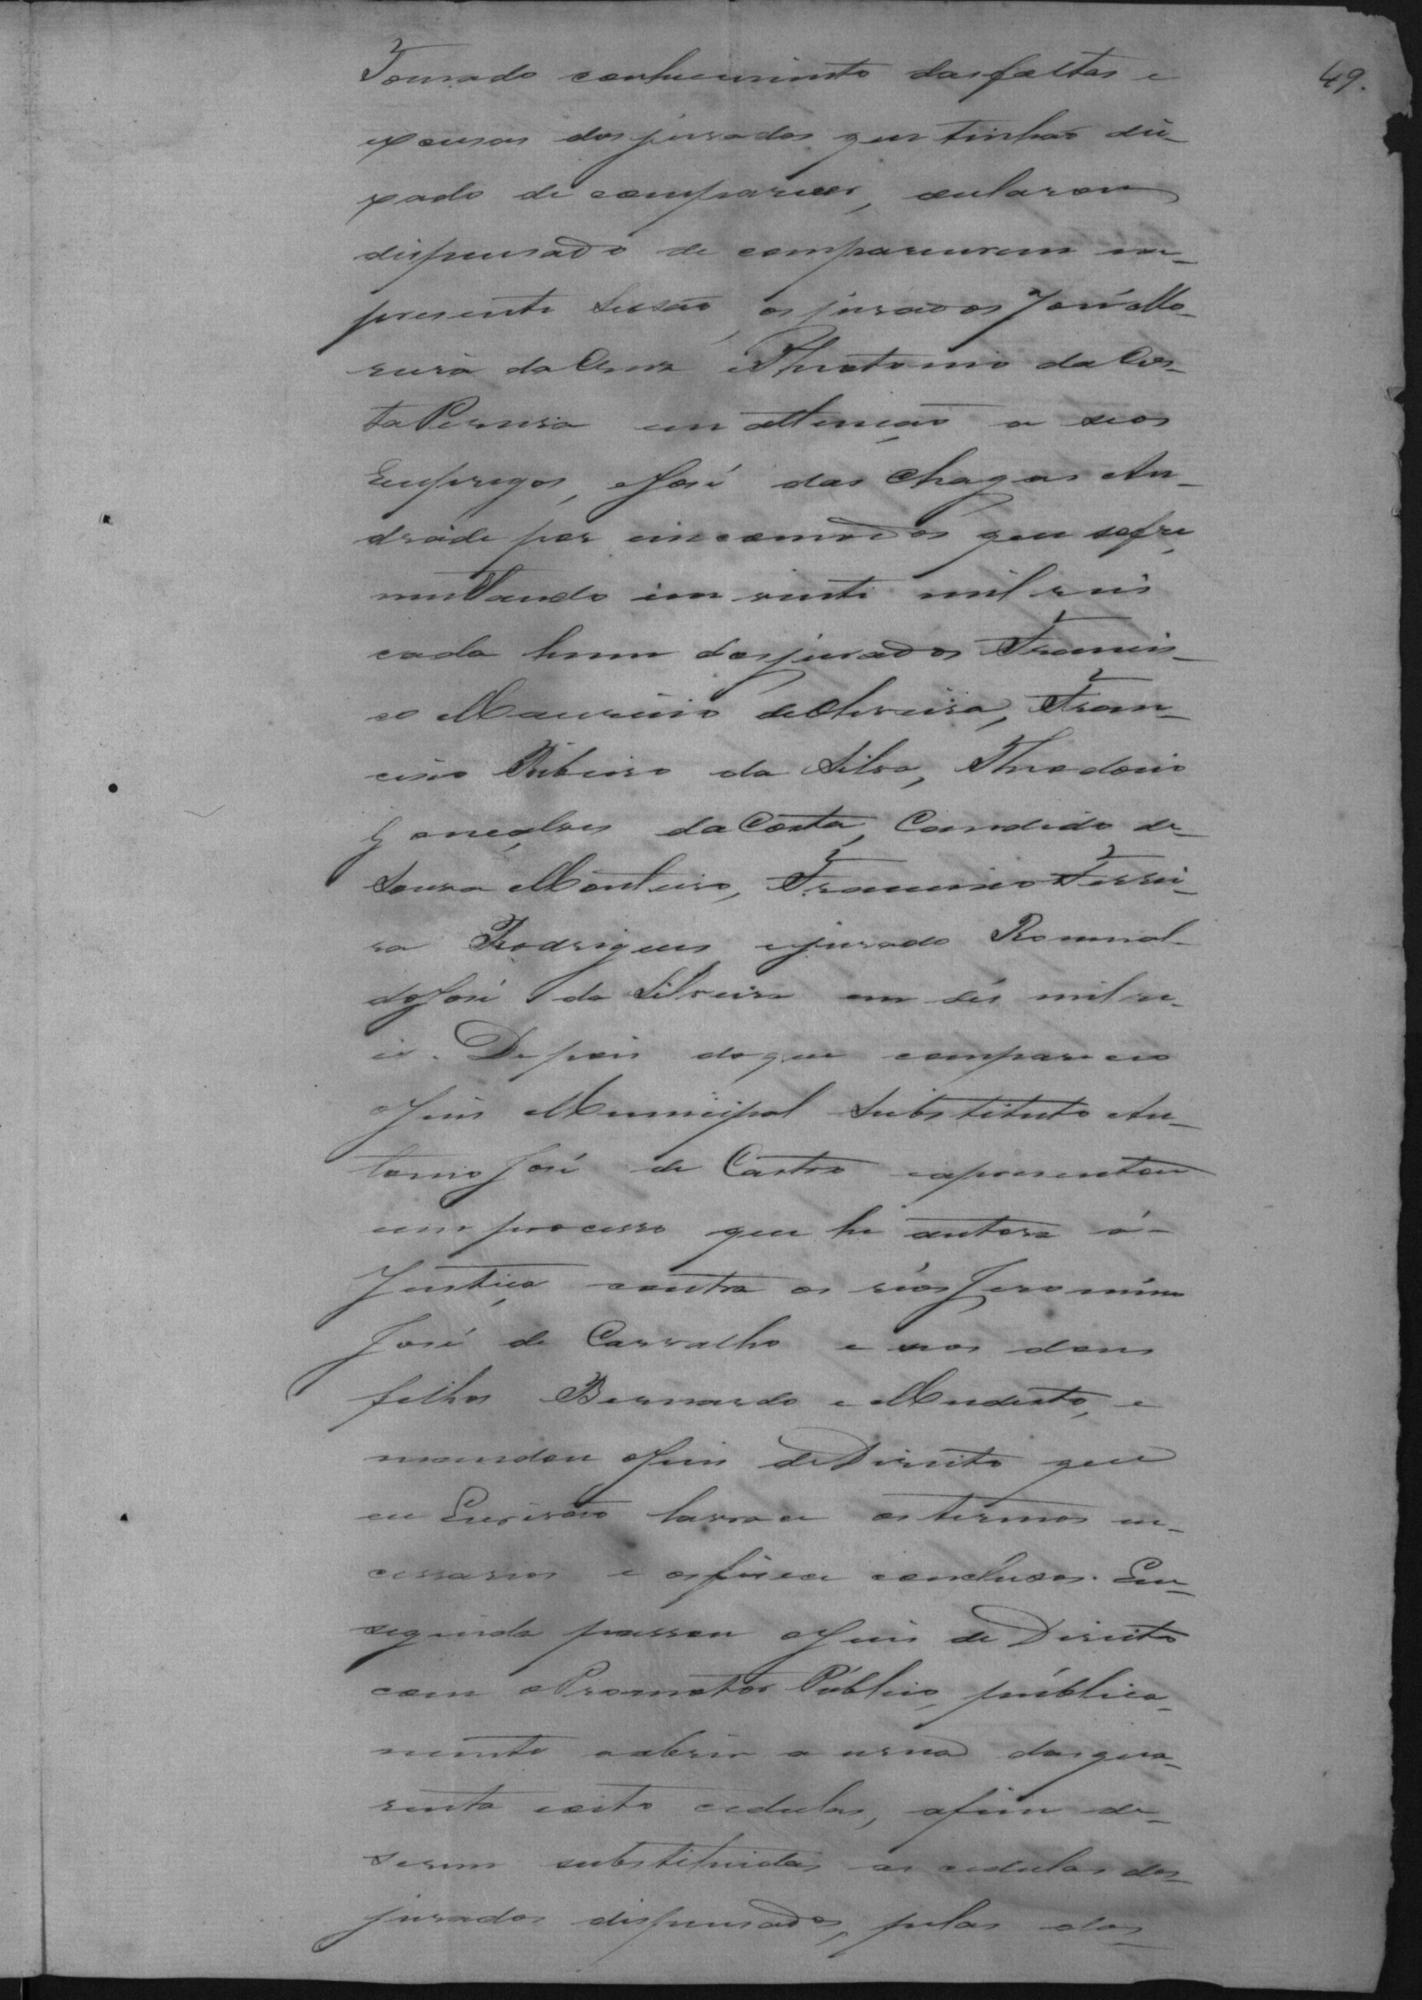 49.
Tomado conhecimento das faltas e
excusas dos jurados que tinhão dei-
xado de comparecer, declarou
dispensado de comparecerem na
presente Sessão, os jurados José Mo-
reira da Cruz e Theotonio da Cos-
ta Pereira em attenção a seos
Empregos, e José das Chagas An-
drade por encommodos que sofre,
multando em vinte mil reis
cada hum dos jurados Francis-
co Mauricio de Oliveira, Fran-
cisco Ribeiro da Silva, Theodosio
Gonçalves da Costa, Candido de
Souza Monteiro, Francisco Ferrei-
ra Rodrigues e jurado Romual-
do José da Silveira em dés mil re-
is. Depois do que compareceo
o Juis Municipal Substituto An-
tonio José de Castro e apresentou
um processo que he autora á
Justiça contra os réos Jeronimo
José de Carvalho e seos dous
filhos Bernardo e Modesto, e
mandou o Juis de Direito que
eu Escrivão lavrace os termos ne-
cessarios e os fizece concluzos. Em
seguida passou o Juis de Direito
com o Promotor Publico, publica-
mente a abrir a urna das qua-
renta e oito cedulas, afim de
serem substituidas as cedulas dos
jurados dispensados, pelas dos